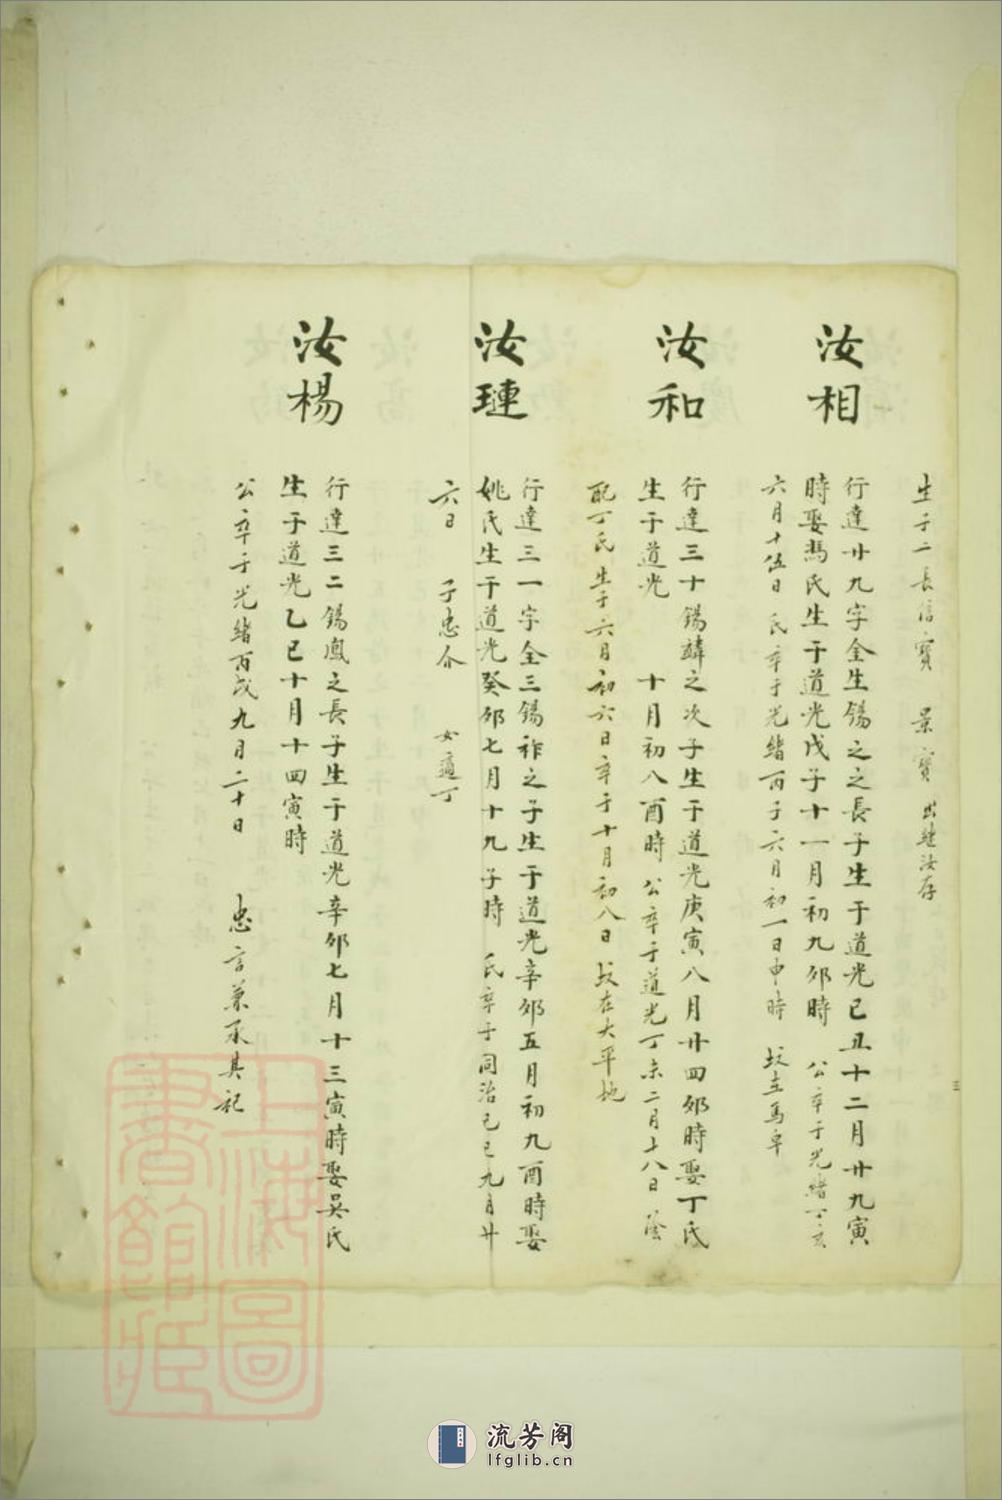 生子二長信寶 景寶出繼汝存
汝相
行達廿九字全生錫之之長子生于道光己丑十二月廿九寅
時娶馮氏生于道光戊子十一月初九卯時 公卒于光緒丁亥
六月十伍日 氏卒于光緒丙子六月初一日申時 坟立馬阜
汝和
行達三十錫辭之次子生于道光庚寅八月廿四卯時娶丁氏
生于道光 十月初八酉時 公卒于道光丁未二月十八日 蔭
配丁氏生于六月初六日卒于十月初八日坟在大平地
汝璉
行達三一字全三錫祚之子生于道光辛卯五月初九酉時娶
姚氏生于道光癸卯七月十九子時 氏卒于同治己巳九月廿
六日 子忠介 女適丁
汝楊
行達三二錫鳳之長子生于道光辛卯七月十三寅時娶吳氏
生于道光乙巳十月十四寅時
公卒于光緒丙戌九月二十日 忠言兼承其祀
三
上海圖
書館藏
流芳阁
lfglib.cn